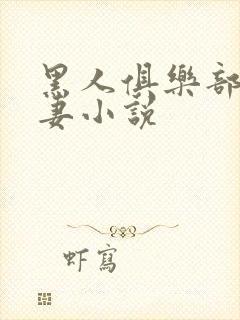 黑人俱樂部
妻小說
虾寫